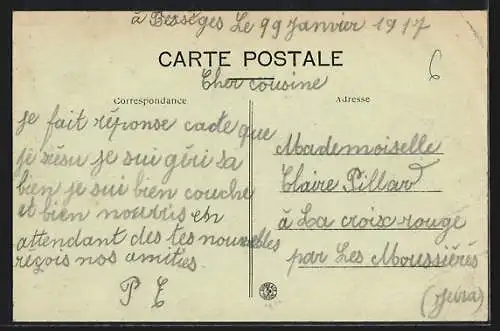 à Bessèges Le 22 Janvier 1917
CARTE POSTALE
6
Cher cousine
Correspondance
Adresse
je fait réponse cade que
je résu je sui géri sa
bien je sui bien couche
et bien nourris en
attendant des tes nouvelles
reçois nos amitiés
P
Mademoiselle
Claire Pillard
à La croix rouge
par Les Moussières
(Jura)